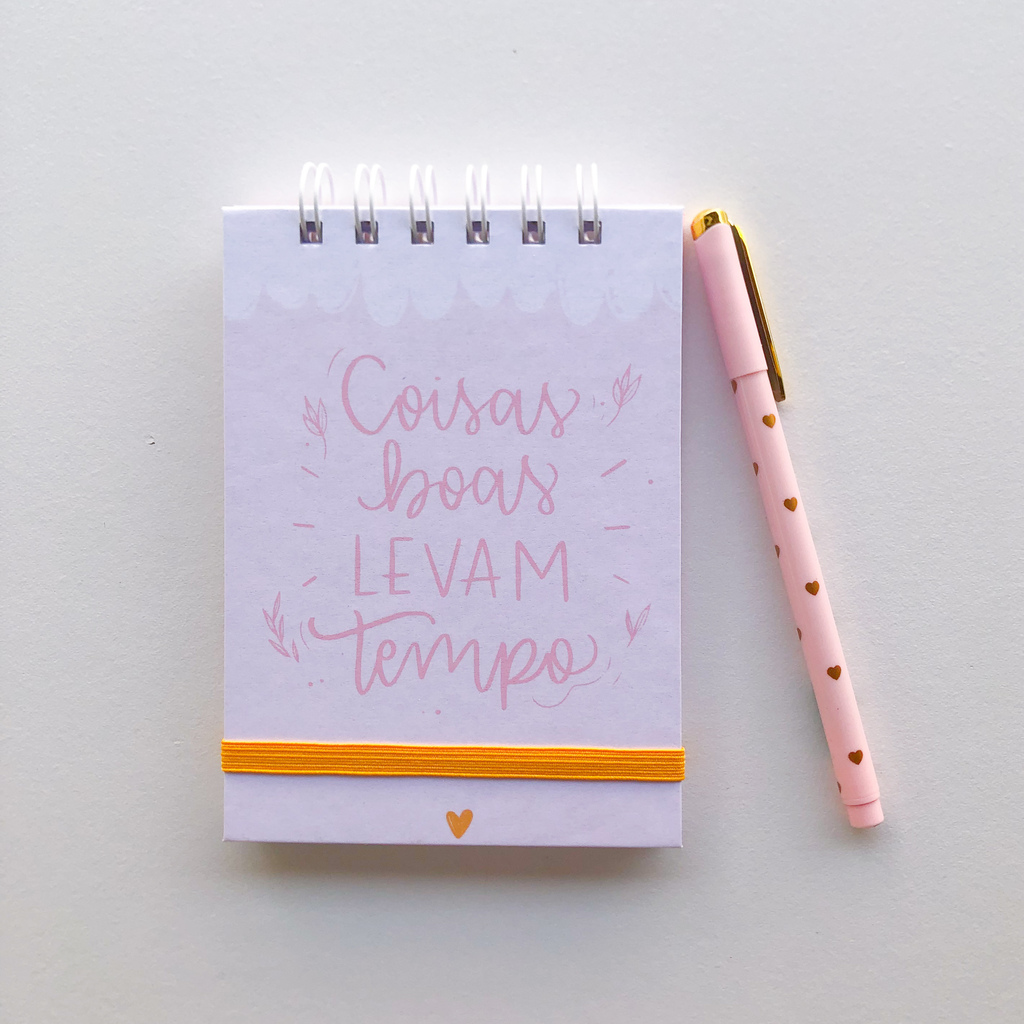 Coisas
boas
LEVAM
tempo